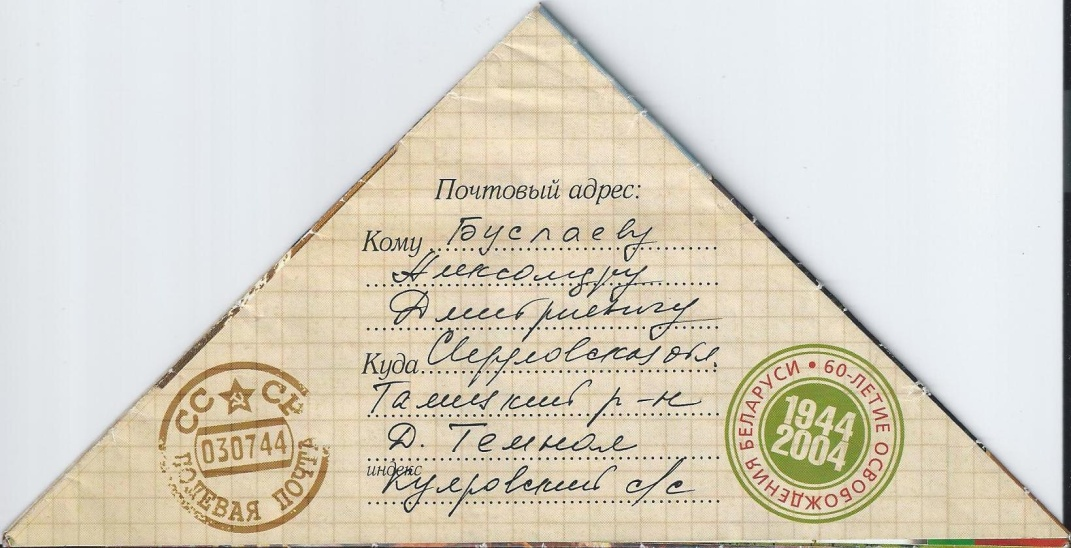 Почтовый адрес:
Кому Буслаеву
Александру
Дмитриевичу
Куда Свердловская обл.
Талицкий р-н
Д. Темная
индекс
Куяровский с/с
СССР
030744
ПОЛЕВАЯ ПОЧТА
60-ЛЕТИЕ ОСВОБОЖДЕНИЯ БЕЛАРУСИ
1944
2004